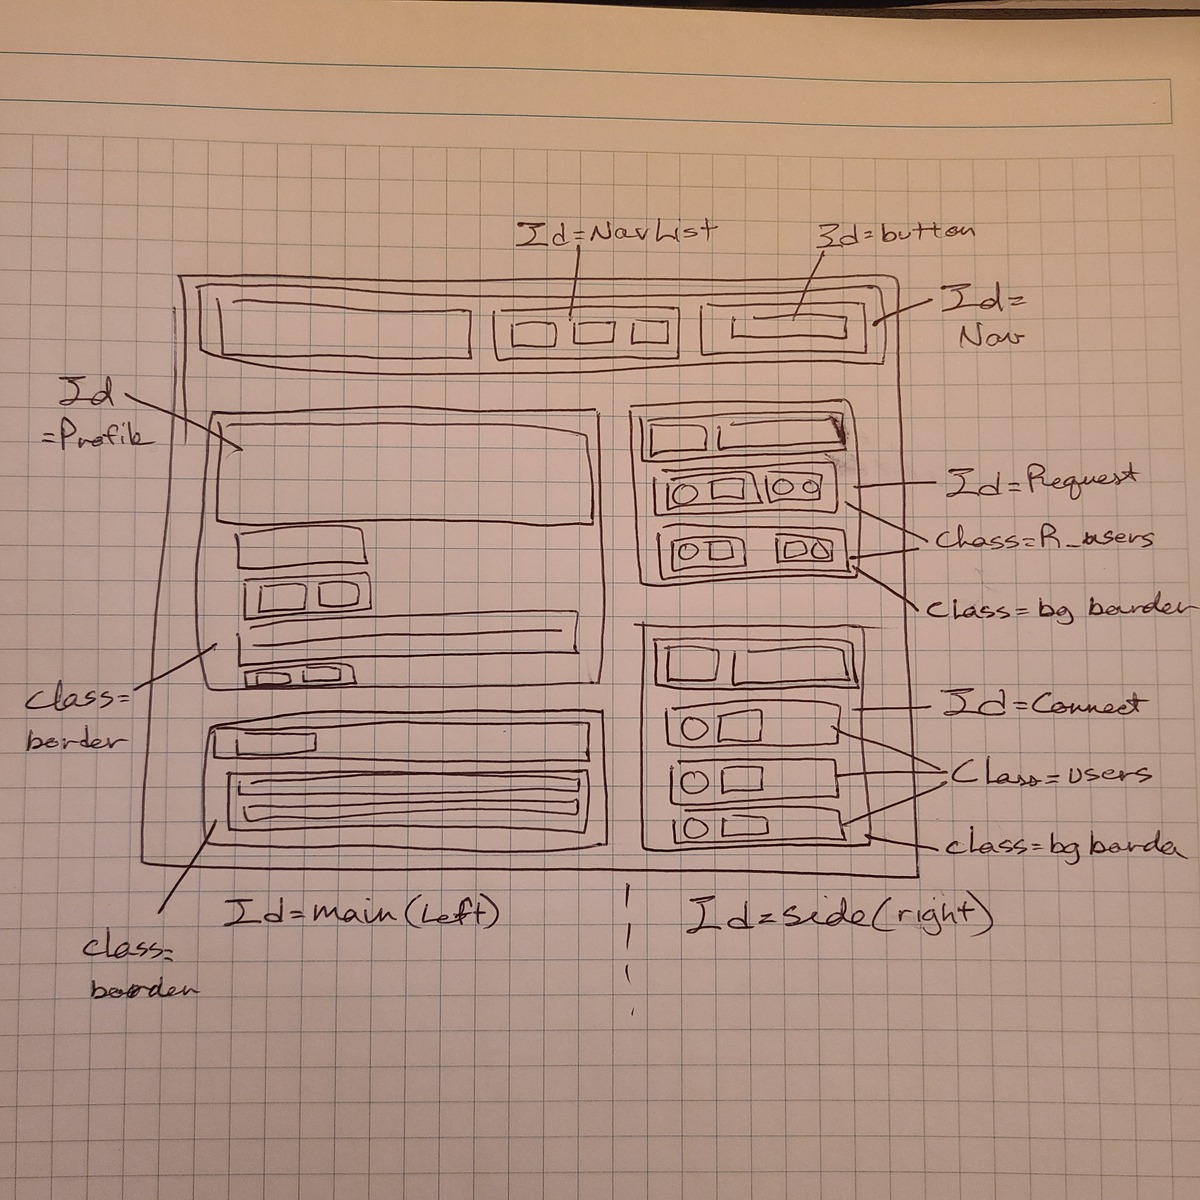 Id=NavList
Id=button
Id=
Nav
Id
=Profile
Id=Request
class=R_users
class=bg boarder
class=
border
Id=Connect
Class=users
class=bg borda
Id=main(Left)
Id=side(right)
class=
boorder